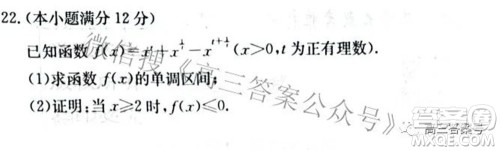 22.(本小题满分12分)
已知函数 f(x)=x^t+x^{1/t}-x^{t+1/t}(x>0,t为正有理数).
(1)求函数 f(x)的单调区间;
(2)证明:当 x≥2 时,f(x)≤0.
微信搜《高三答案公众号》
高三答案号